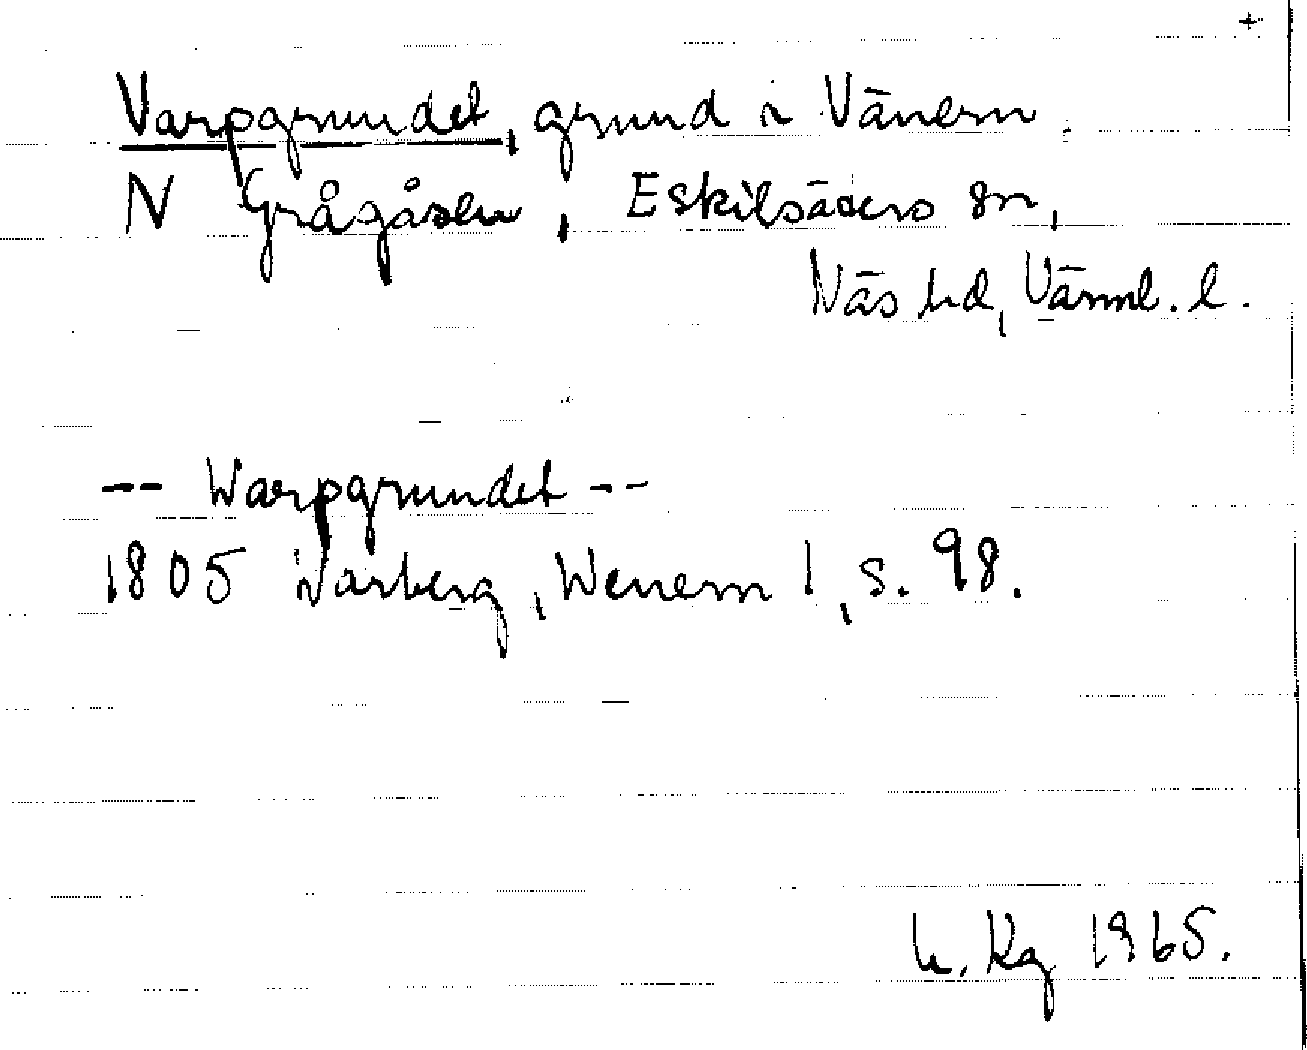 +
Varpgrundet, grund i Vänern
N Grågåsen, Eskilsäters sn,
Näs hd, Värml. l.
-- Warpgrundet --
1805 Warberg, Wenern 1, s. 98.
Kg 1965.